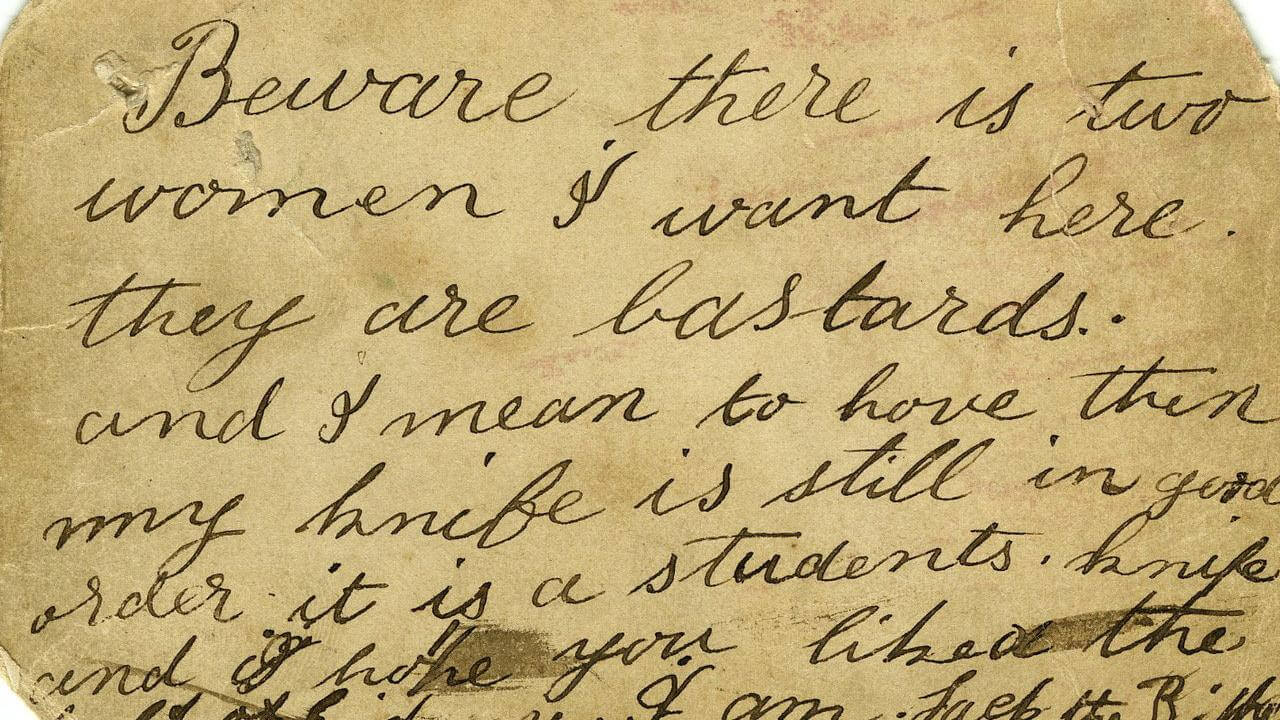 Beware there is two
women I want here.
they are bastards..
and I mean to hove then
my knife is still in good
order. it is a students. knife
and I hope you liked the
I am. Jack the